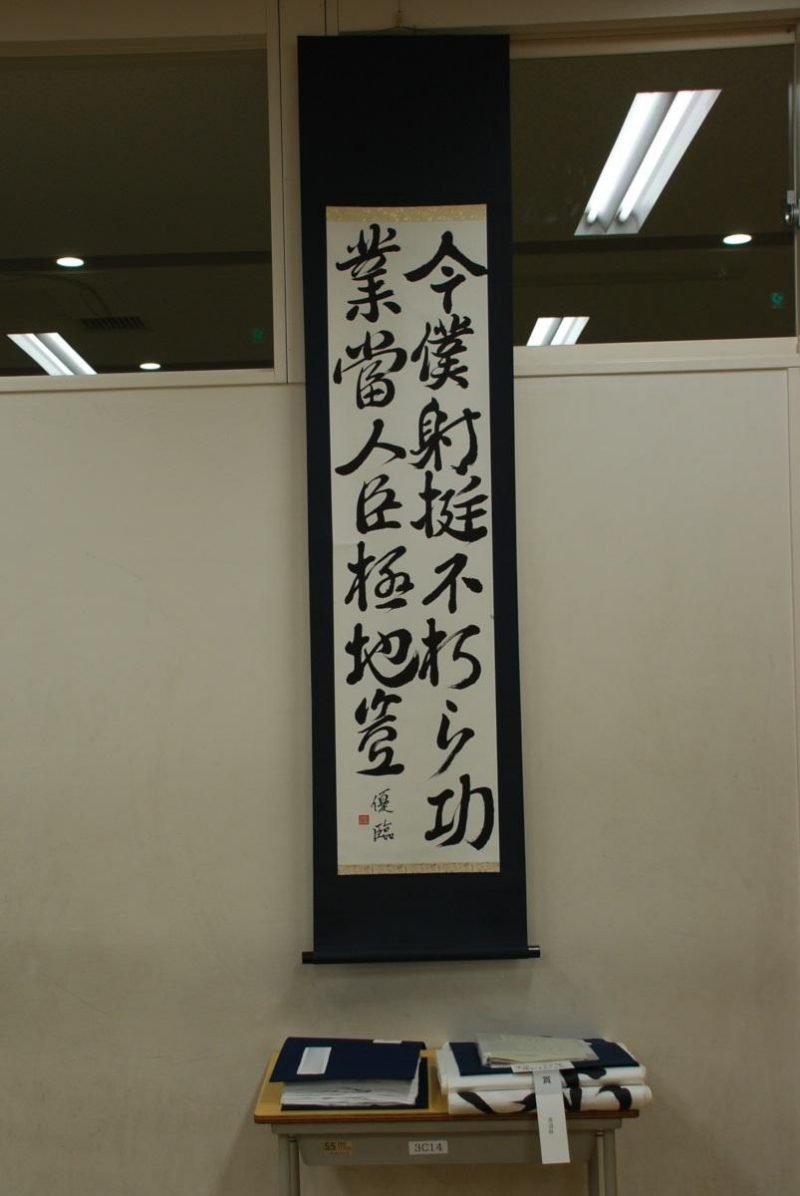 今僕射挺不朽之功
業當人臣極地豈
優臨
賞
3C14